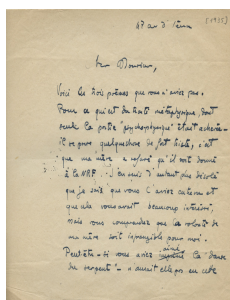 47 av d'Iéna
(1955)
Monsieur,
Voici les trois poèmes que vous n'aviez pas.
Pour ce qui est du traité métaphysique dont
seule la partie "psychophysique" était achevée
il se passe quelque chose de fort triste, c'est
que ma mère a refusé qu'il soit donné
à la NRF. J'en suis d'autant plus désolé
que je sais que vous l'aviez
et que cela vous avait beaucoup intéressé,
mais vous comprendrez que les volontés de
ma mère soit pour moi.
Peut-être si vous aviez aimé la "danse
du serpent" - aurait-elle pu en